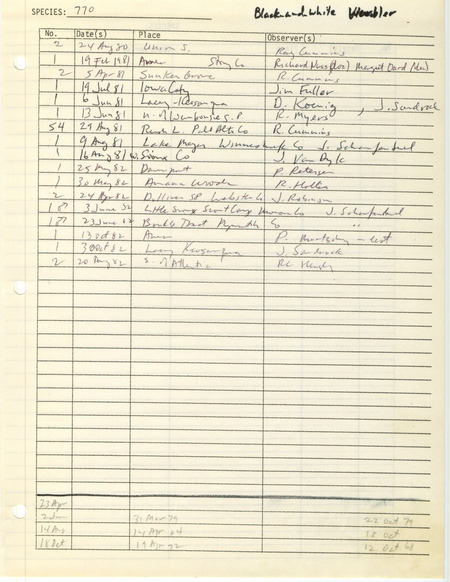 SPECIES: 770 Black and white Warbler
No. Date(s) Place Observer(s)
2 24 Aug 80 Union S. Ray Cummins
1 19 Feb 1981 Ames Story Co Richard
2 5 Apr 81 Sunken Grove R. Cummins
1 19 Jul 81 Iowa City Jim Fuller
1 6 Jun 81 Lacey-Keosauqua D. Koenig, J. Sandrock
1 13 Jun 81 N. of S.P. R. Myers
54 29 Aug 81 Rush L. Palo Alto Co R. Cummins
1 9 Aug 81 Lake Meyer Winneshiek Co J. Schaufenbuel
1 16 Aug 81 W. Sioux Co J. Van Dyk
1 25 May 82 Davenport P. Petersen
1 30 May 82 Amana Woods R. Hollis
2 24 Apr 82 Dolliver SP Webster Co J. Robinson
1♂ 3 June 82 Little Sioux Scout Camp Monona Co J. Schaufenbuel
1♂ 23 June 82 Tract Plymouth Co "
13 Oct 82 Ames P. Montgomery
1 3 Oct 82 Lacey Keosauqua J. Sandrock
2 20 Aug 82 S. of Atlantic
23 Apr
2 Jun 31 Mar 79 22 Oct 79
14 Aug 14 Apr 64 18 Oct
18 Oct 19 Apr 92 12 Oct 68